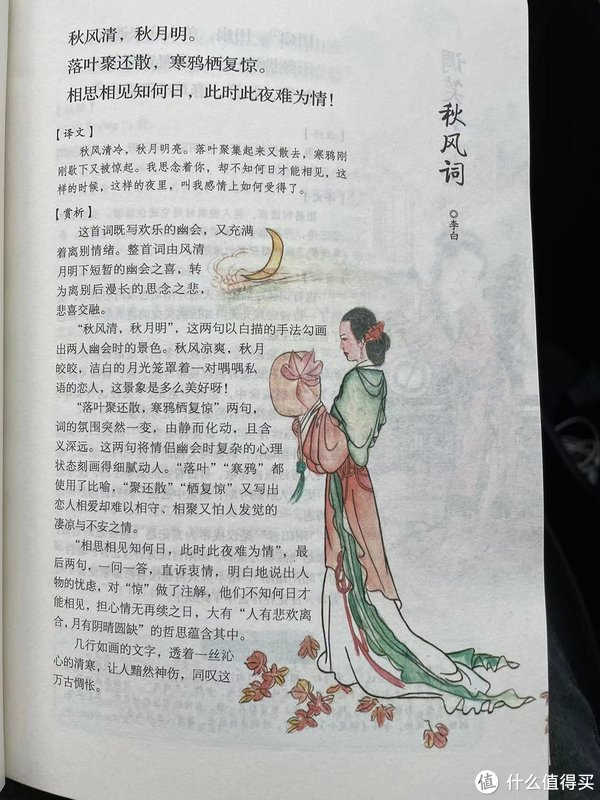 秋风词
◎李白
秋风清，秋月明。
落叶聚还散，寒鸦栖复惊。
相思相见知何日，此时此夜难为情！
【译文】
秋风清冷，秋月明亮。落叶聚集起来又散去，寒鸦刚
刚歇下又被惊起。我思念着你，却不知何日才能相见，这
样的时候，这样的夜里，叫我感情上如何受得了。
【赏析】
这首词既写欢乐的幽会，又充满
着离别情绪。整首词由风清
月明下短暂的幽会之喜，转
为离别后漫长的思念之悲，
悲喜交融。
“秋风清，秋月明”，这两句以白描的手法勾画
出两人幽会时的景色。秋风凉爽，秋月
皎皎，洁白的月光笼罩着一对喁喁私
语的恋人，这景象是多么美好呀！
“落叶聚还散，寒鸦栖复惊”两句，
词的氛围突然一变，由静而化动，且含
义深远。这两句将情侣幽会时复杂的心理
状态刻画得细腻动人。“落叶”“寒鸦”都
使用了比喻，“聚还散”“栖复惊”又写出
恋人相爱却难以相守、相聚又怕人发觉的
凄凉与不安之情。
“相思相见知何日，此时此夜难为情”，最
后两句，一问一答，直诉衷情，明白地说出人
物的忧虑，对“惊”做了注解，他们不知何日才
能相见，担心情无再续之日，大有“人有悲欢离
合，月有阴晴圆缺”的哲思蕴含其中。
几行如画的文字，透着一丝沁
心的清寒，让人黯然神伤，同叹这
万古惆怅。
值 什么值得买